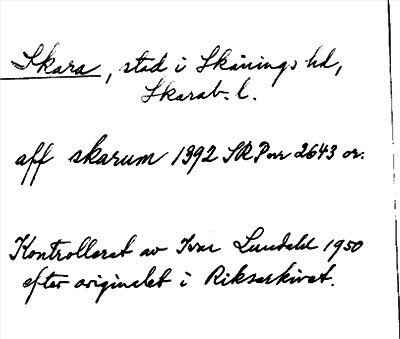 Skara, stad i Skånings hd,
Skarab. l.
aff skarum 1392 SRP nr 2643 or.
Kontrollerat av Ivar Lundahl 1950
efter originalet i Riksarkivet.